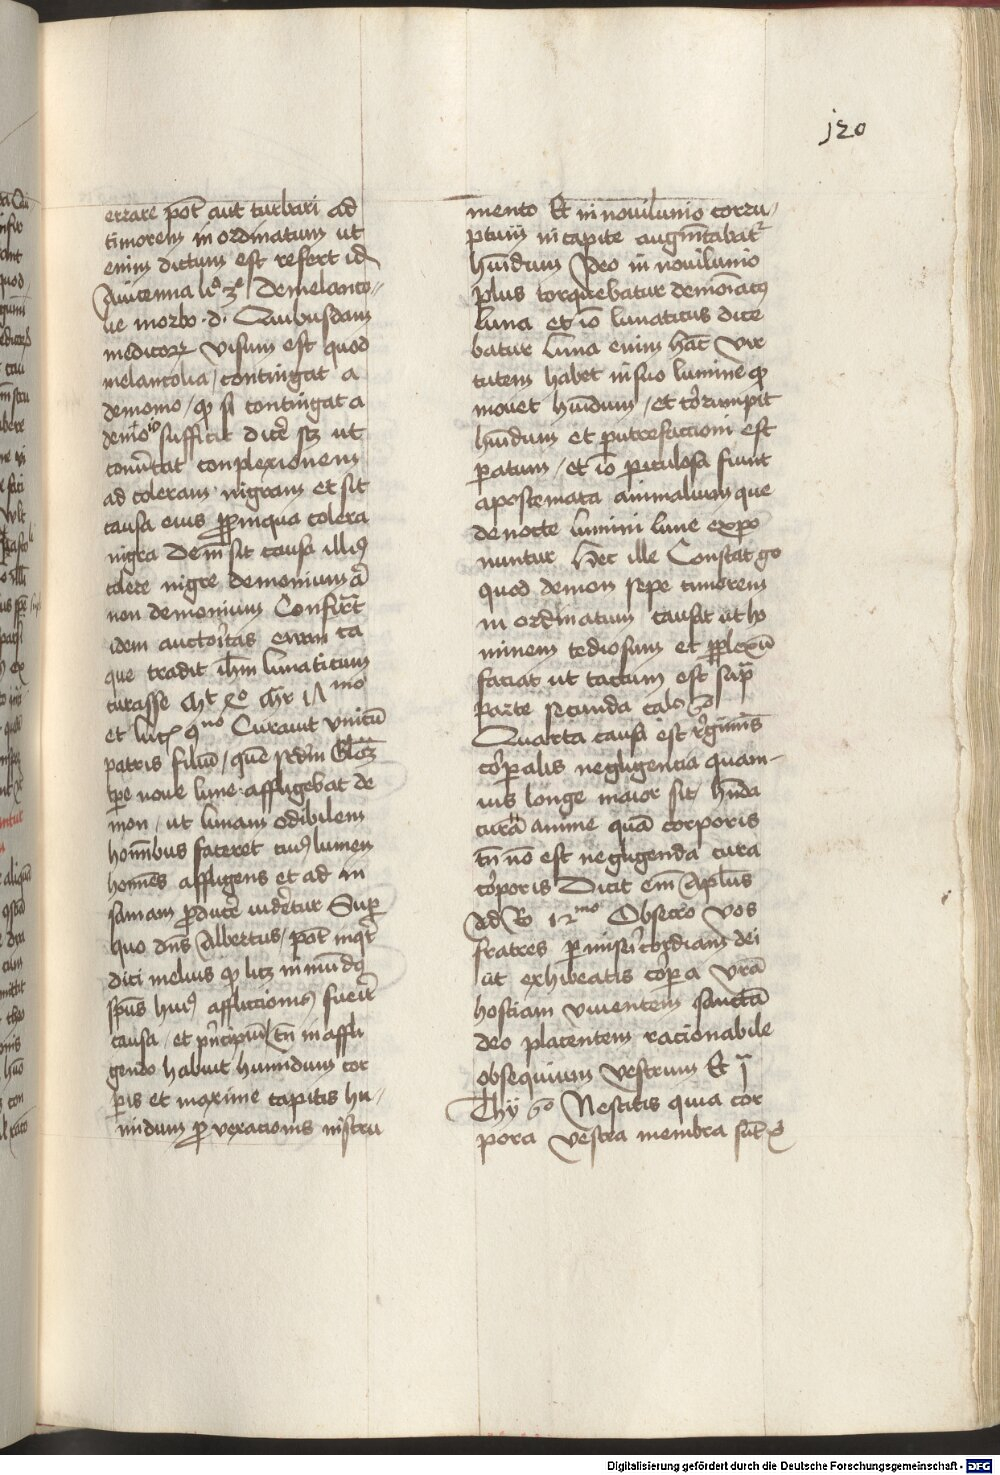 j20
errare pot̄ aut turbari ad
timorem in ordinatum ut
enim dictum est refert id
Auicenna li° 3° De melanco-
lie morbo · d · Quibusdam
medicoꝝ visum est quod
melancolia / contingat a
demonio / ꝙ si contingat a
demōio sufficit dicē scꝫ ut
conūtat conplexionem
ad coleram nigram et sit
causa eius ꝓpinqua colera
nigra Dem̄ sit causa illiꝰ
colere nigre demonium aū
non demonium Confirāt
idem auctoritas ewan ca
que tradit ihm̄ lunaticum
curasse
et luc̄ 9no Curauit vnicū
patris filiū / quē scdm̄ Glosā
tp̄e noue lune affligebat de
mon / ut lunam odibilem
hominībus faceret cuiꝰ lumen
homīes affligens et ad in
saniam ꝓducē uidetur Super
quo dn̄s Albertus / pot̄
dici melius ꝙ licꝫ in mūdꝰ
sp̄us huiꝰ afflictionis fueit
causa / et pn̄cipiū / tn̄ in affli
gendo habuit humidum cor
ꝑis et maxime capitis hu-
midum ꝓ vexacionis instru
mento Et in nouilunio corru-
ptum in capite augmētabatᷣ
hūidum Ideo in nouilunio
plus torquebatur demoīacꝰ
luna et iō lunaticus dice
batur Luna enim hāc vir
tutem habet in suo lumine ꝙ
mouet hūidum / et corrumpit
hūidum et putrefactioni est
ꝑatum / et iō piculosa fiunt
apostemata animalium que
de nocte lumini lune expo
nuntur Hec ille Constat go
quod demon sepe timorem
in ordinatum causat ut ho
minem tediosum et ꝑplexū
faciat ut tactum est sup̄
parte secunda
Quarta causa est rēgimīs
corꝑalis negligencia quam-
uis longe maior sit / hn̄da
curā anime quā corporis
tn̄ nō est negligenda cura
corporis Dicit em̄ Apl̄us
Ad Ro 12mo Obsecro vos
fratres ꝑ misericordiam dei
ut exhibeatis corꝑa vrā
hostiam viuentem sanctā
deo placentem racionabile
obsequium vestrum Et j
Nescitis quia cor
pora vestra membra sūt
Digitalisierung gefördert durch die Deutsche Forschungsgemeinschaft - DFG